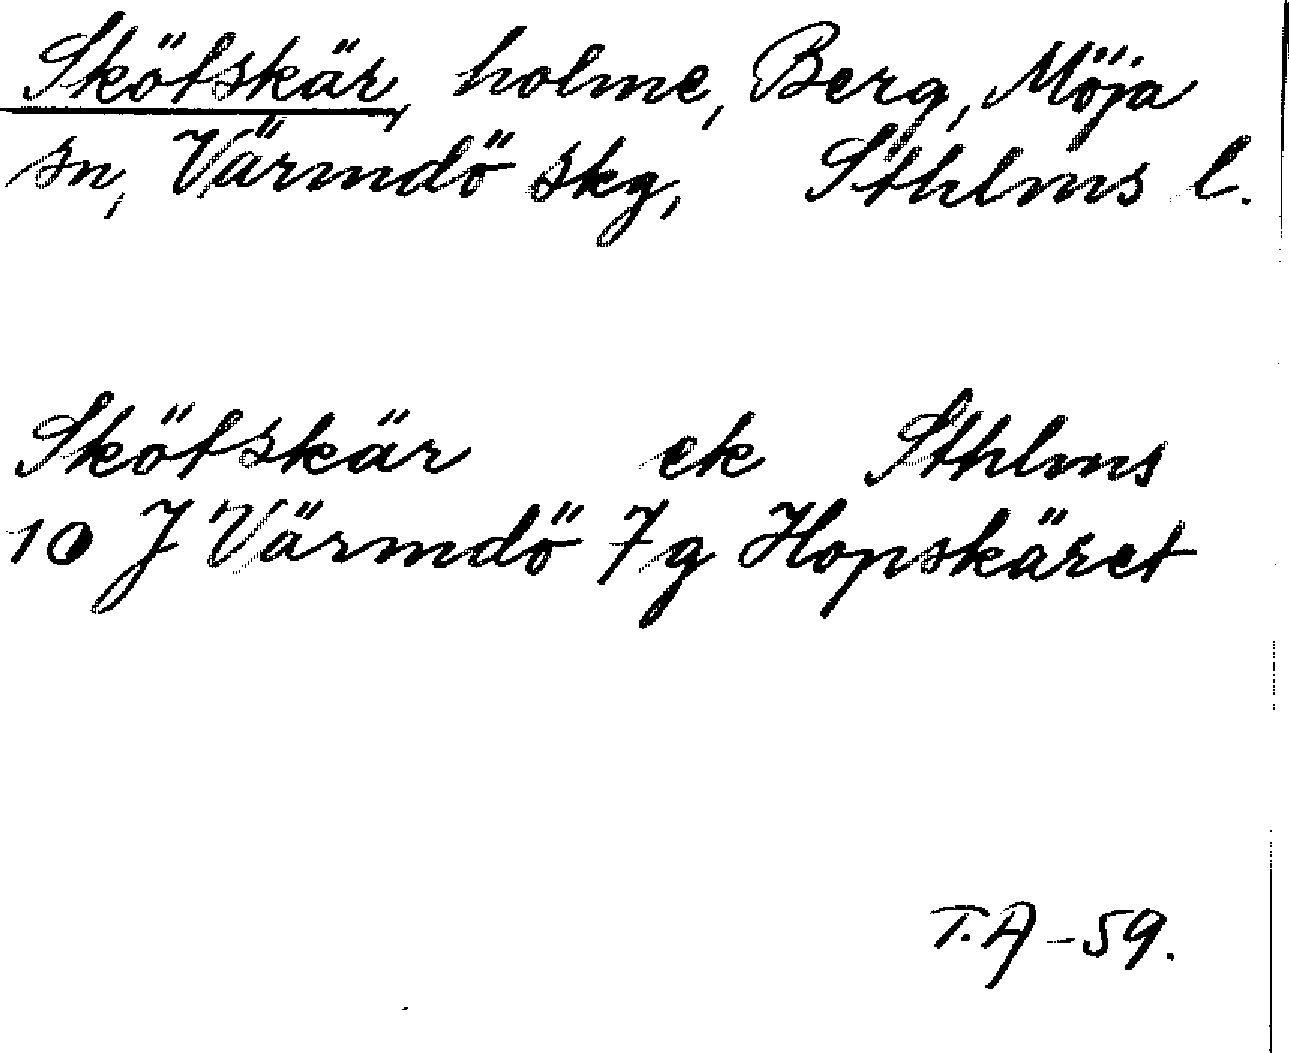 Skötskär, holme, Berg, Möja
sn, Värmdö skg, Sthlms l.
Skötskär ek Sthlms
10 J Värmdö 7g Hopskäret
T.A -59.